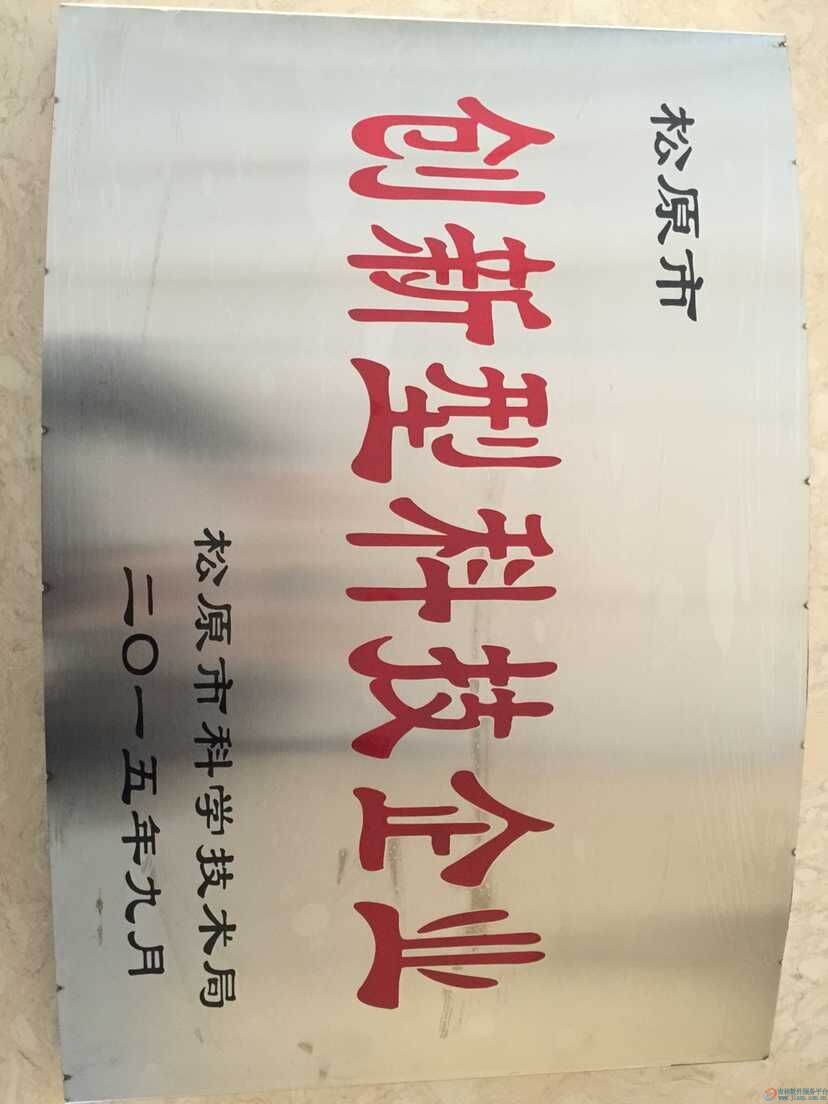 松原市
创新型科技企业
松原市科学技术局
二〇一五年九月